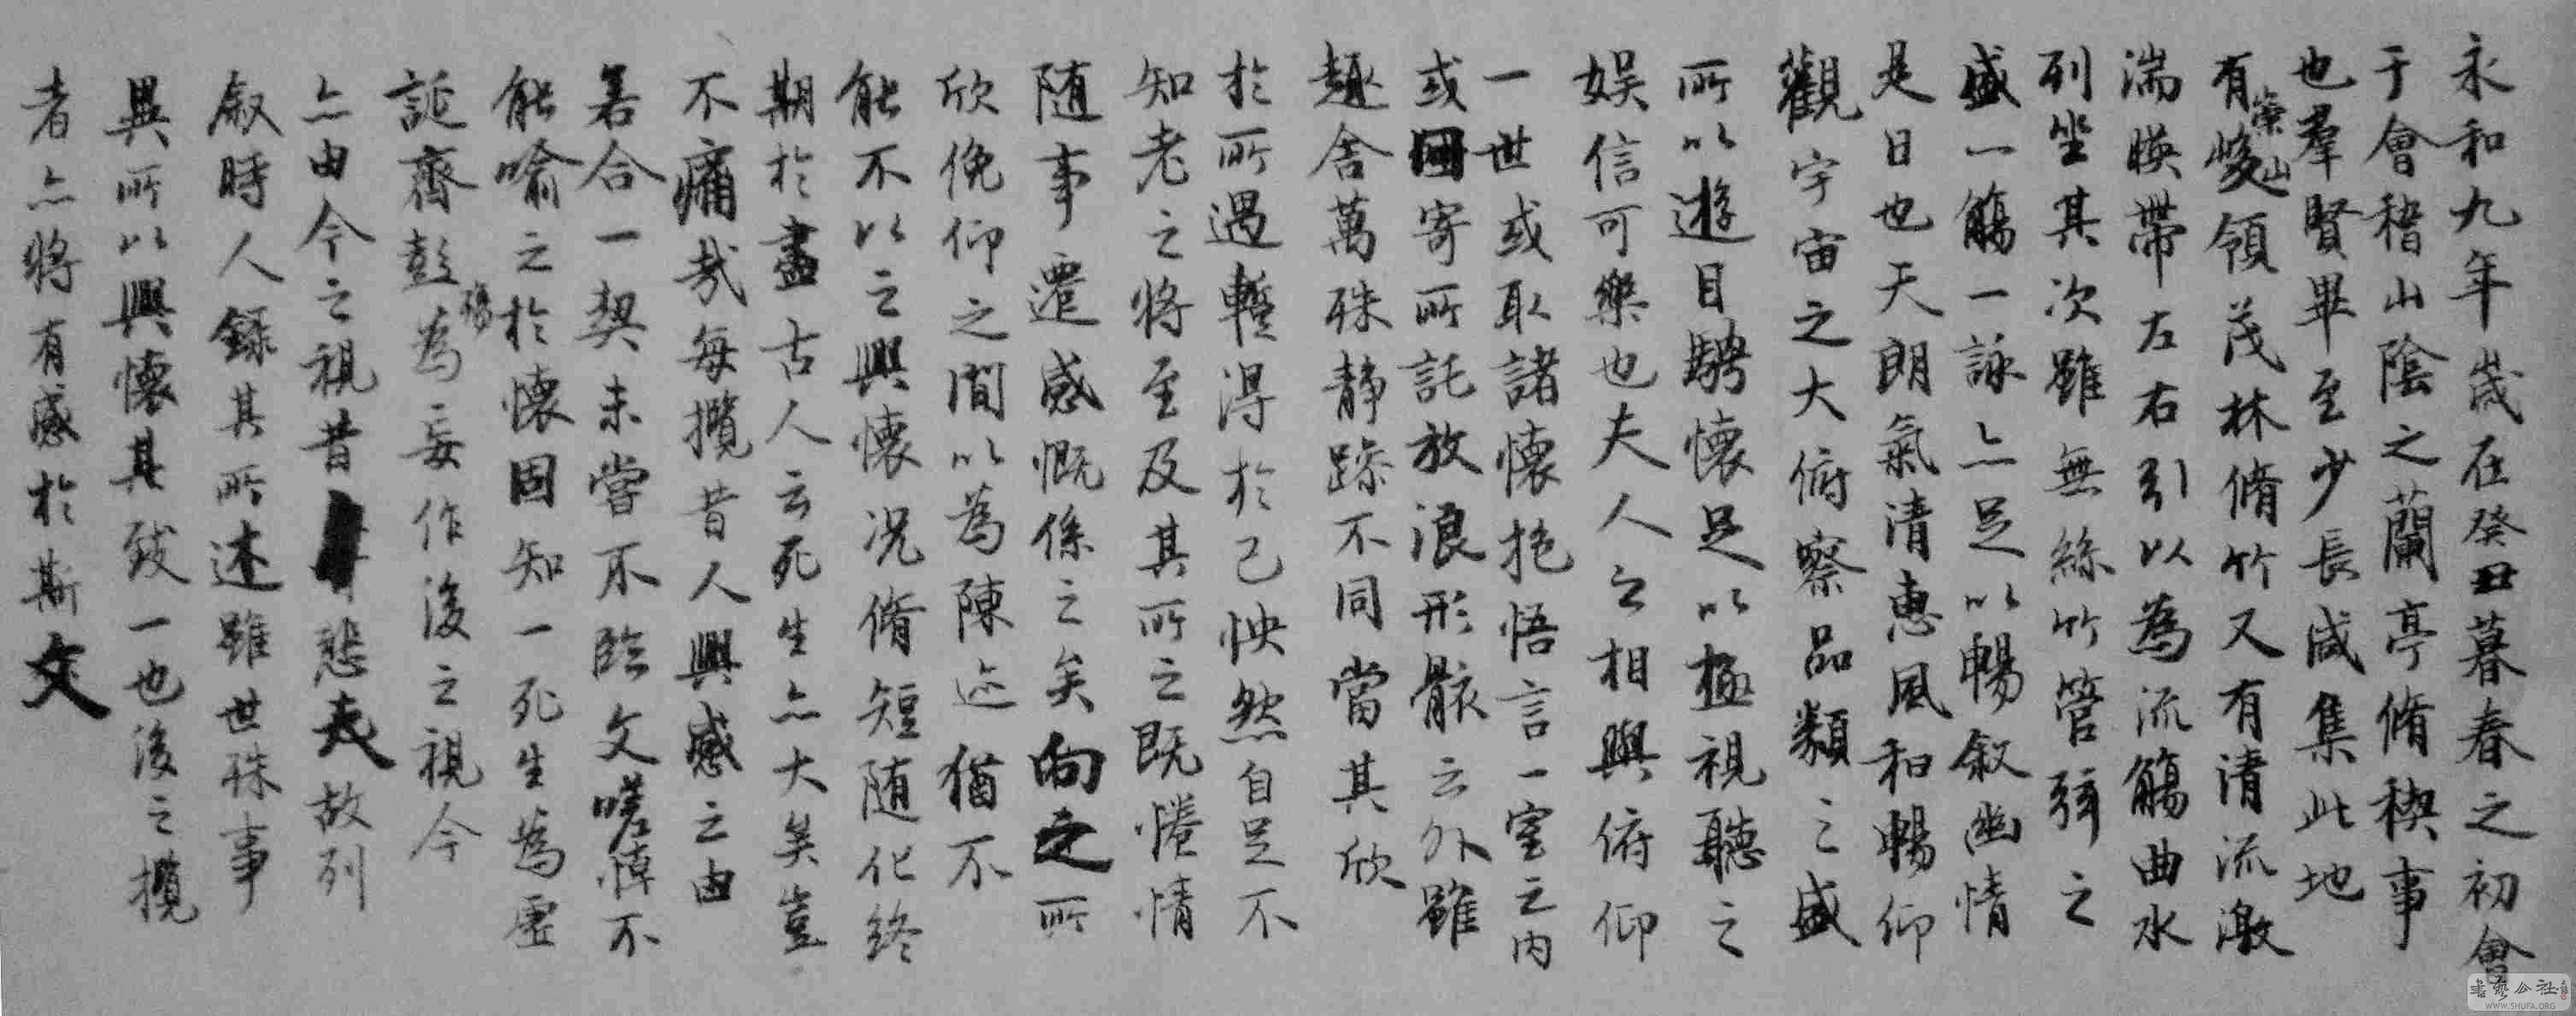 永和九年歲在癸丑暮春之初會
于會稽山陰之蘭亭脩稧事
也羣賢畢至少長咸集此地
有崇山峻領茂林脩竹又有清流激
湍暎帶左右引以為流觴曲水
列坐其次雖無絲竹管弦之
盛一觴一詠亦足以暢敘幽情
是日也天朗氣清惠風和暢仰
觀宇宙之大俯察品類之盛
所以遊目騁懷足以極視聽之
娛信可樂也夫人之相與俯仰
一世或取諸懷抱悟言一室之內
或因寄所託放浪形骸之外雖
趣舍萬殊靜躁不同當其欣
於所遇暫得於己怏然自足不
知老之將至及其所之既惓情
隨事遷感慨係之矣向之所
欣俛仰之間以為陳迹猶不
能不以之興懷況脩短隨化終
期於盡古人云死生亦大矣豈
不痛哉每攬昔人興感之由
若合一契未嘗不臨文嗟悼不
能喻之於懷固知一死生為虛
誕齊彭殤為妄作後之視今
亦由今之視昔悲夫故列
敘時人錄其所述雖世殊事
異所以興懷其致一也後之攬
者亦將有感於斯文
書藝公社
WWW.SHUFA.ORG